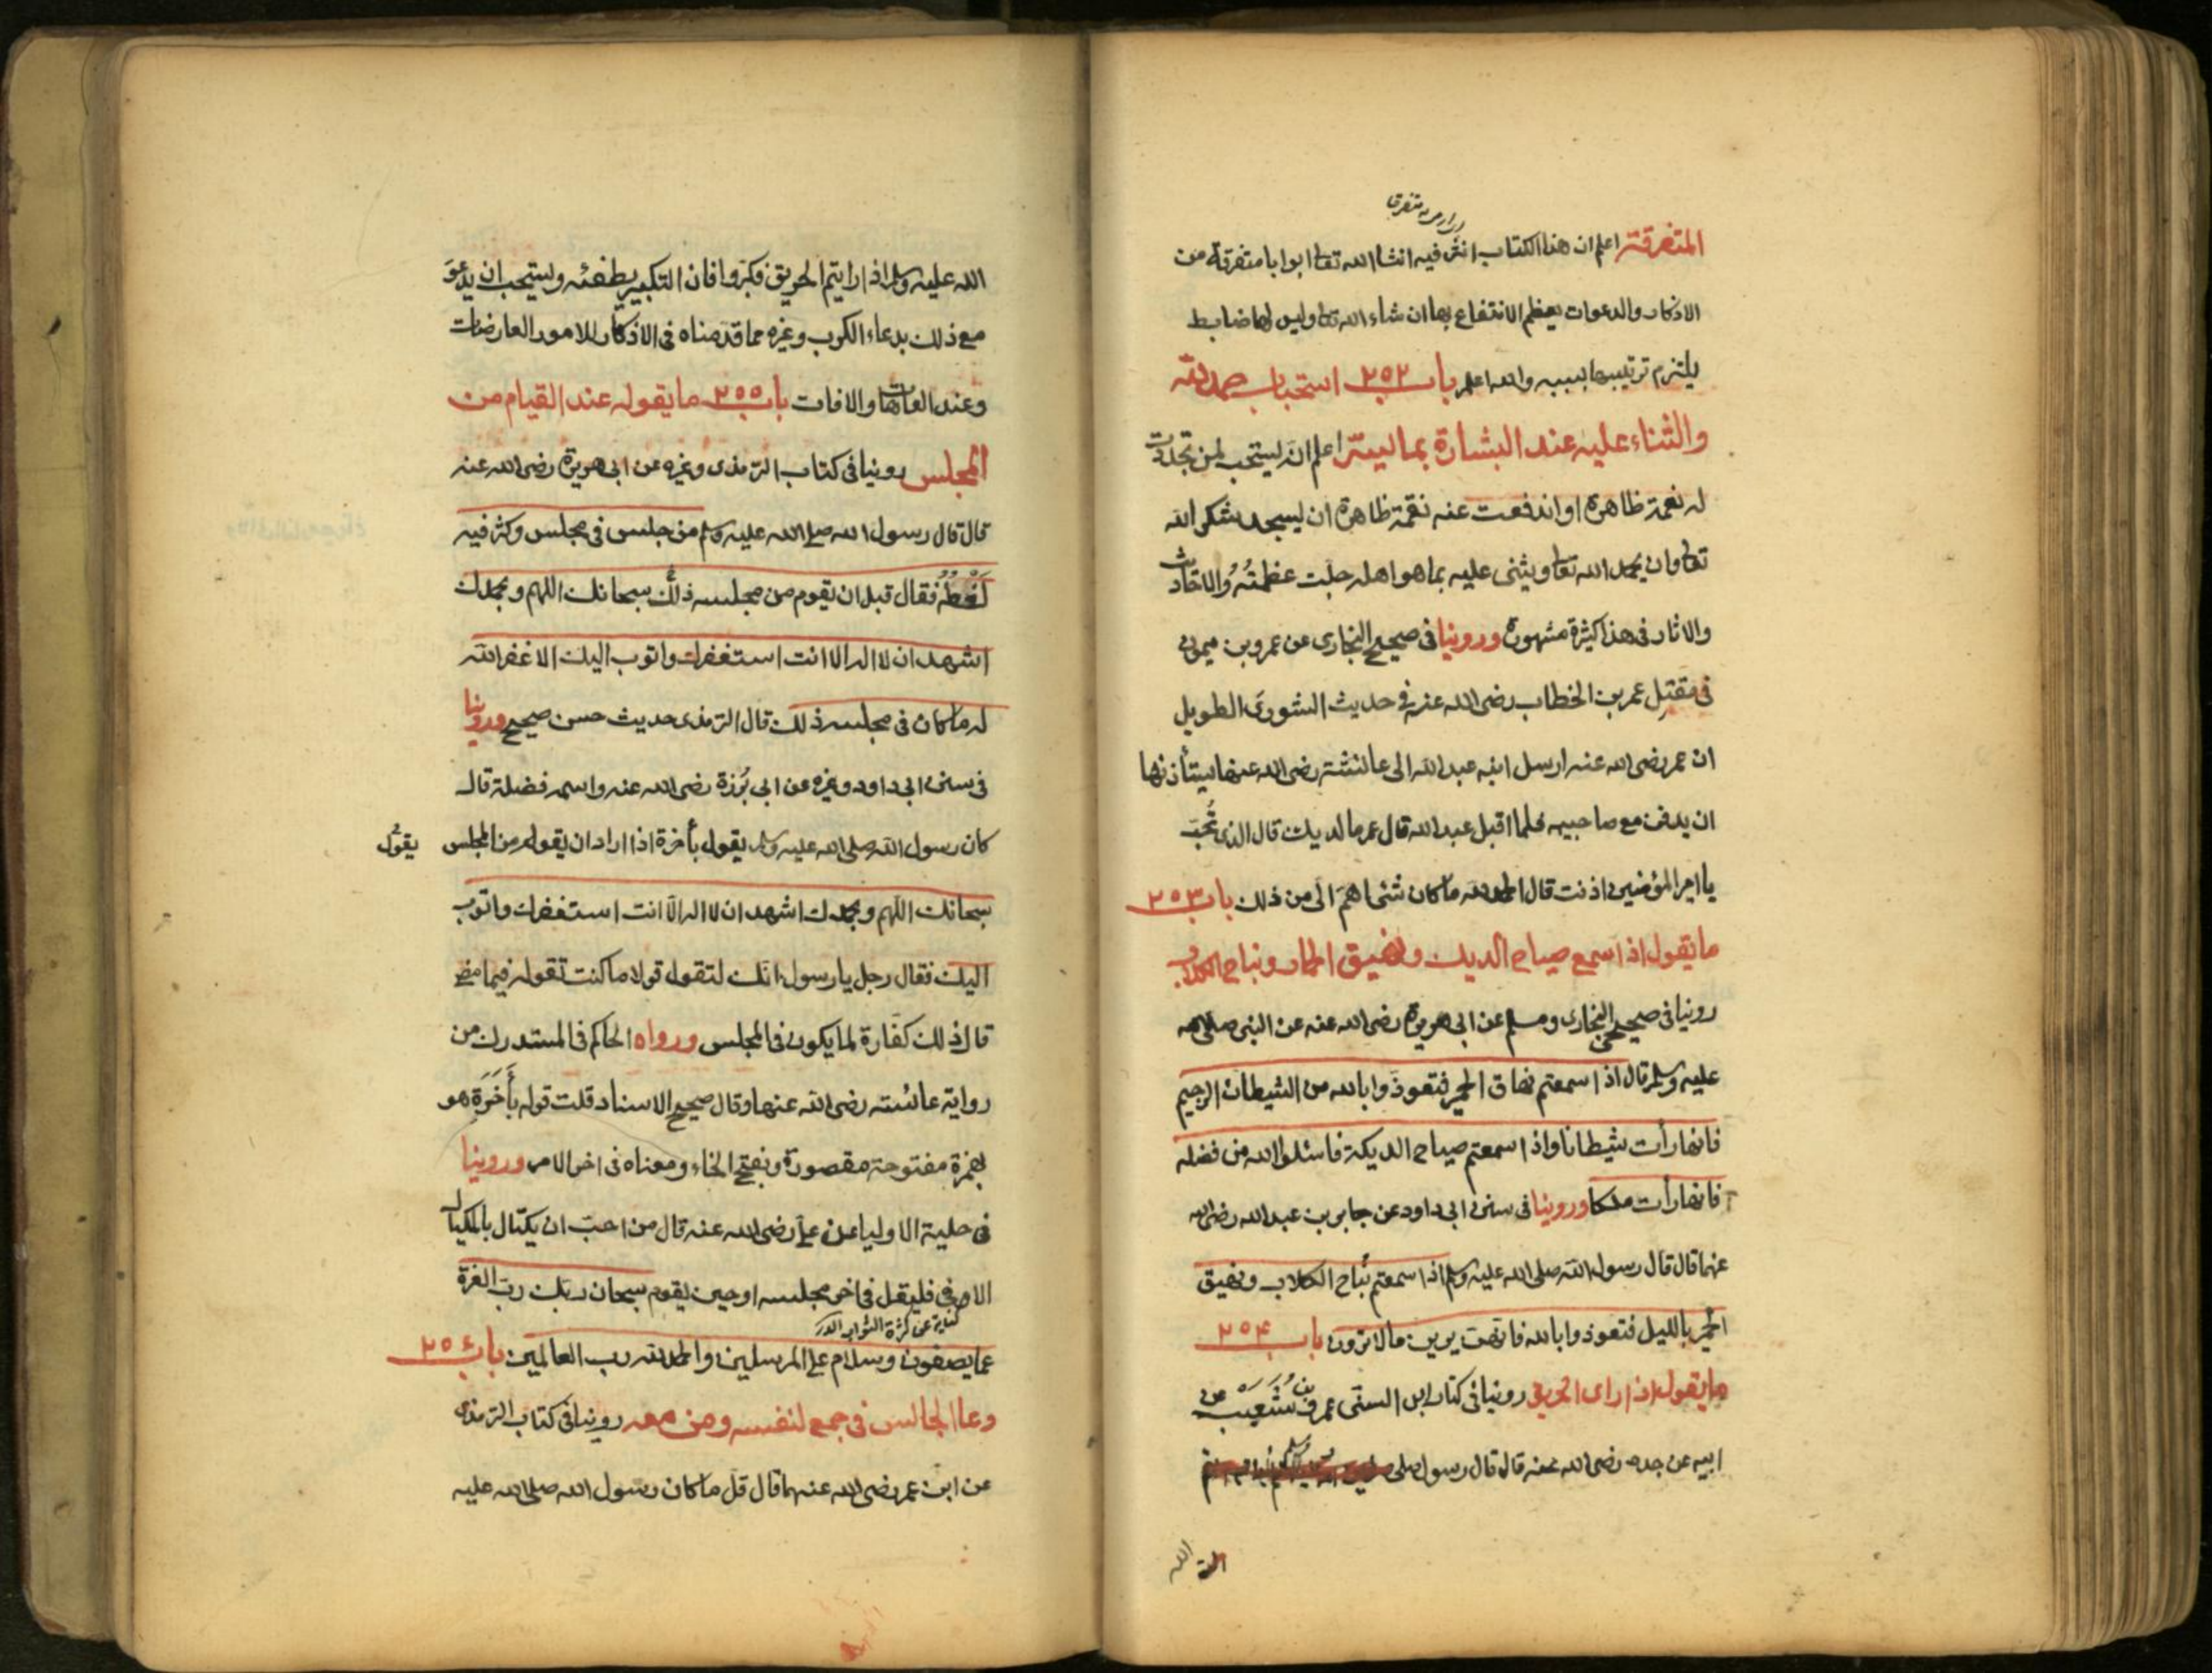 المتفرقة اعلم ان هذا الكتاب انثر فيه انشا الله تعا ابوابا متفرقة من
الاذكار والدعوات يعظم الانتفاع بها ان شاء الله تعا وليس لها ضابط
يلتزم ترتيبها بسببه والله اعلم باب ٢٥٢ استحباب حمد الله
والثناء عليه عند البشارة بما يسره اعلم انه يستحب لمن تجددت
له نعمة ظاهرة او اندفعت عنه نقمة ظاهرة ان يسجد شكرا لله
تعا وان يحمد الله تعا ويثنى عليه بما هو اهله جلت عظمته والاحاديث
والاثار فى هذا كثيرة مشهورة وروينا فى صحيح البخارى عن عمرو بن ميمون
فى مقتل عمر بن الخطاب رضى الله عنه في حديث الشورى الطويل
ان عمر رضى الله عنه ارسل ابنه عبد الله الى عائشة رضى الله عنها يستأذنها
ان يدفن مع صاحبيه فلما اقبل عبد الله قال عمر ما لديك قال الذى تحب
يا امير المؤمنين اذنت قال الحمد لله ما كان شئ اهم الى من ذلك باب ٢٥٣
ما يقول اذا سمع صياح الديك ونهيق الحمار ونباح الكلاب
روينا فى صحيحى البخارى ومسلم عن ابى هريرة رضى الله عنه عن النبى صلى الله
عليه وسلم قال اذا سمعتم نهاق الحمير فتعوذوا بالله من الشيطان الرجيم
فانها رأت شيطانا واذا سمعتم صياح الديكة فاسئلوا الله من فضله
فانها رأت ملكا وروينا فى سنن ابى داود عن جابر بن عبد الله رضى الله
عنهما قال قال رسول الله صلى الله عليه وسلم اذا سمعتم نباح الكلاب ونهيق
الحمير بالليل فتعوذوا بالله فانهن يرين ما لا ترون باب ٢٥٤
ما يقول اذا راى الحريق روينا فى كتاب ابن السنى عمرو بن شعيب عن
ابيه عن جده رضى الله عنه قال قال رسول صلى
الله
الله عليه وسلم اذا رايتم الحريق فكبروا فان التكبير يطفئه ويستحب ان يدعو
مع ذلك بدعاء الكرب وغيره مما قدمناه فى الاذكار للامور العارضات
وعند العاهات والافات باب ٢٥٥ ما يقوله عند القيام من
المجلس روينا فى كتاب الترمذى وغيره عن ابى هريرة رضى الله عنه
قال قال رسول الله صلى الله عليه وسلم من جلس فى مجلس وكثر فيه
لغطه فقال قبل ان يقوم من مجلسه ذلك سبحانك اللهم وبحمدك
اشهد ان لا اله الا انت استغفرك واتوب اليك الا غفر الله
له ما كان فى مجلسه ذلك قال الترمذى حديث حسن صحيح وروينا
فى سنن ابى داود وغيره عن ابى برزة رضى الله عنه واسمه فضلة قال
كان رسول الله صلى الله عليه وسلم يقول بأخرة اذا اراد ان يقوم من المجلس
يقول
سبحانك اللهم وبحمدك اشهد ان لا اله الا انت استغفرك واتوب
اليك فقال رجل يا رسول انك لتقول قولا ما كنت تقوله فيما مضى
قال ذلك كفارة لما يكون فى المجلس ورواه الحاكم فى المستدرك من
رواية عائشة رضى الله عنها وقال صحيح الاسناد قلت قوله بأخرة هو
بهمزة مفتوحة مقصورة وبفتح الخاء ومعناه فى اخر الامر وروينا
فى حلية الاولياء عن على رضى الله عنه قال من احب ان يكتال بالمكيال
الاوفى فليقل فى اخر مجلسه او حين يقوم سبحان ربك رب العزة
كناية عن كثرة الثواب
عما يصفون وسلام على المرسلين والحمد لله رب العالمين باب ٢٥٦
دعا الجالس فى جمع لنفسه ومن معه روينا فى كتاب الترمذى
عن ابن عمر رضى الله عنهما قال قل ما كان رسول الله صلى الله عليه